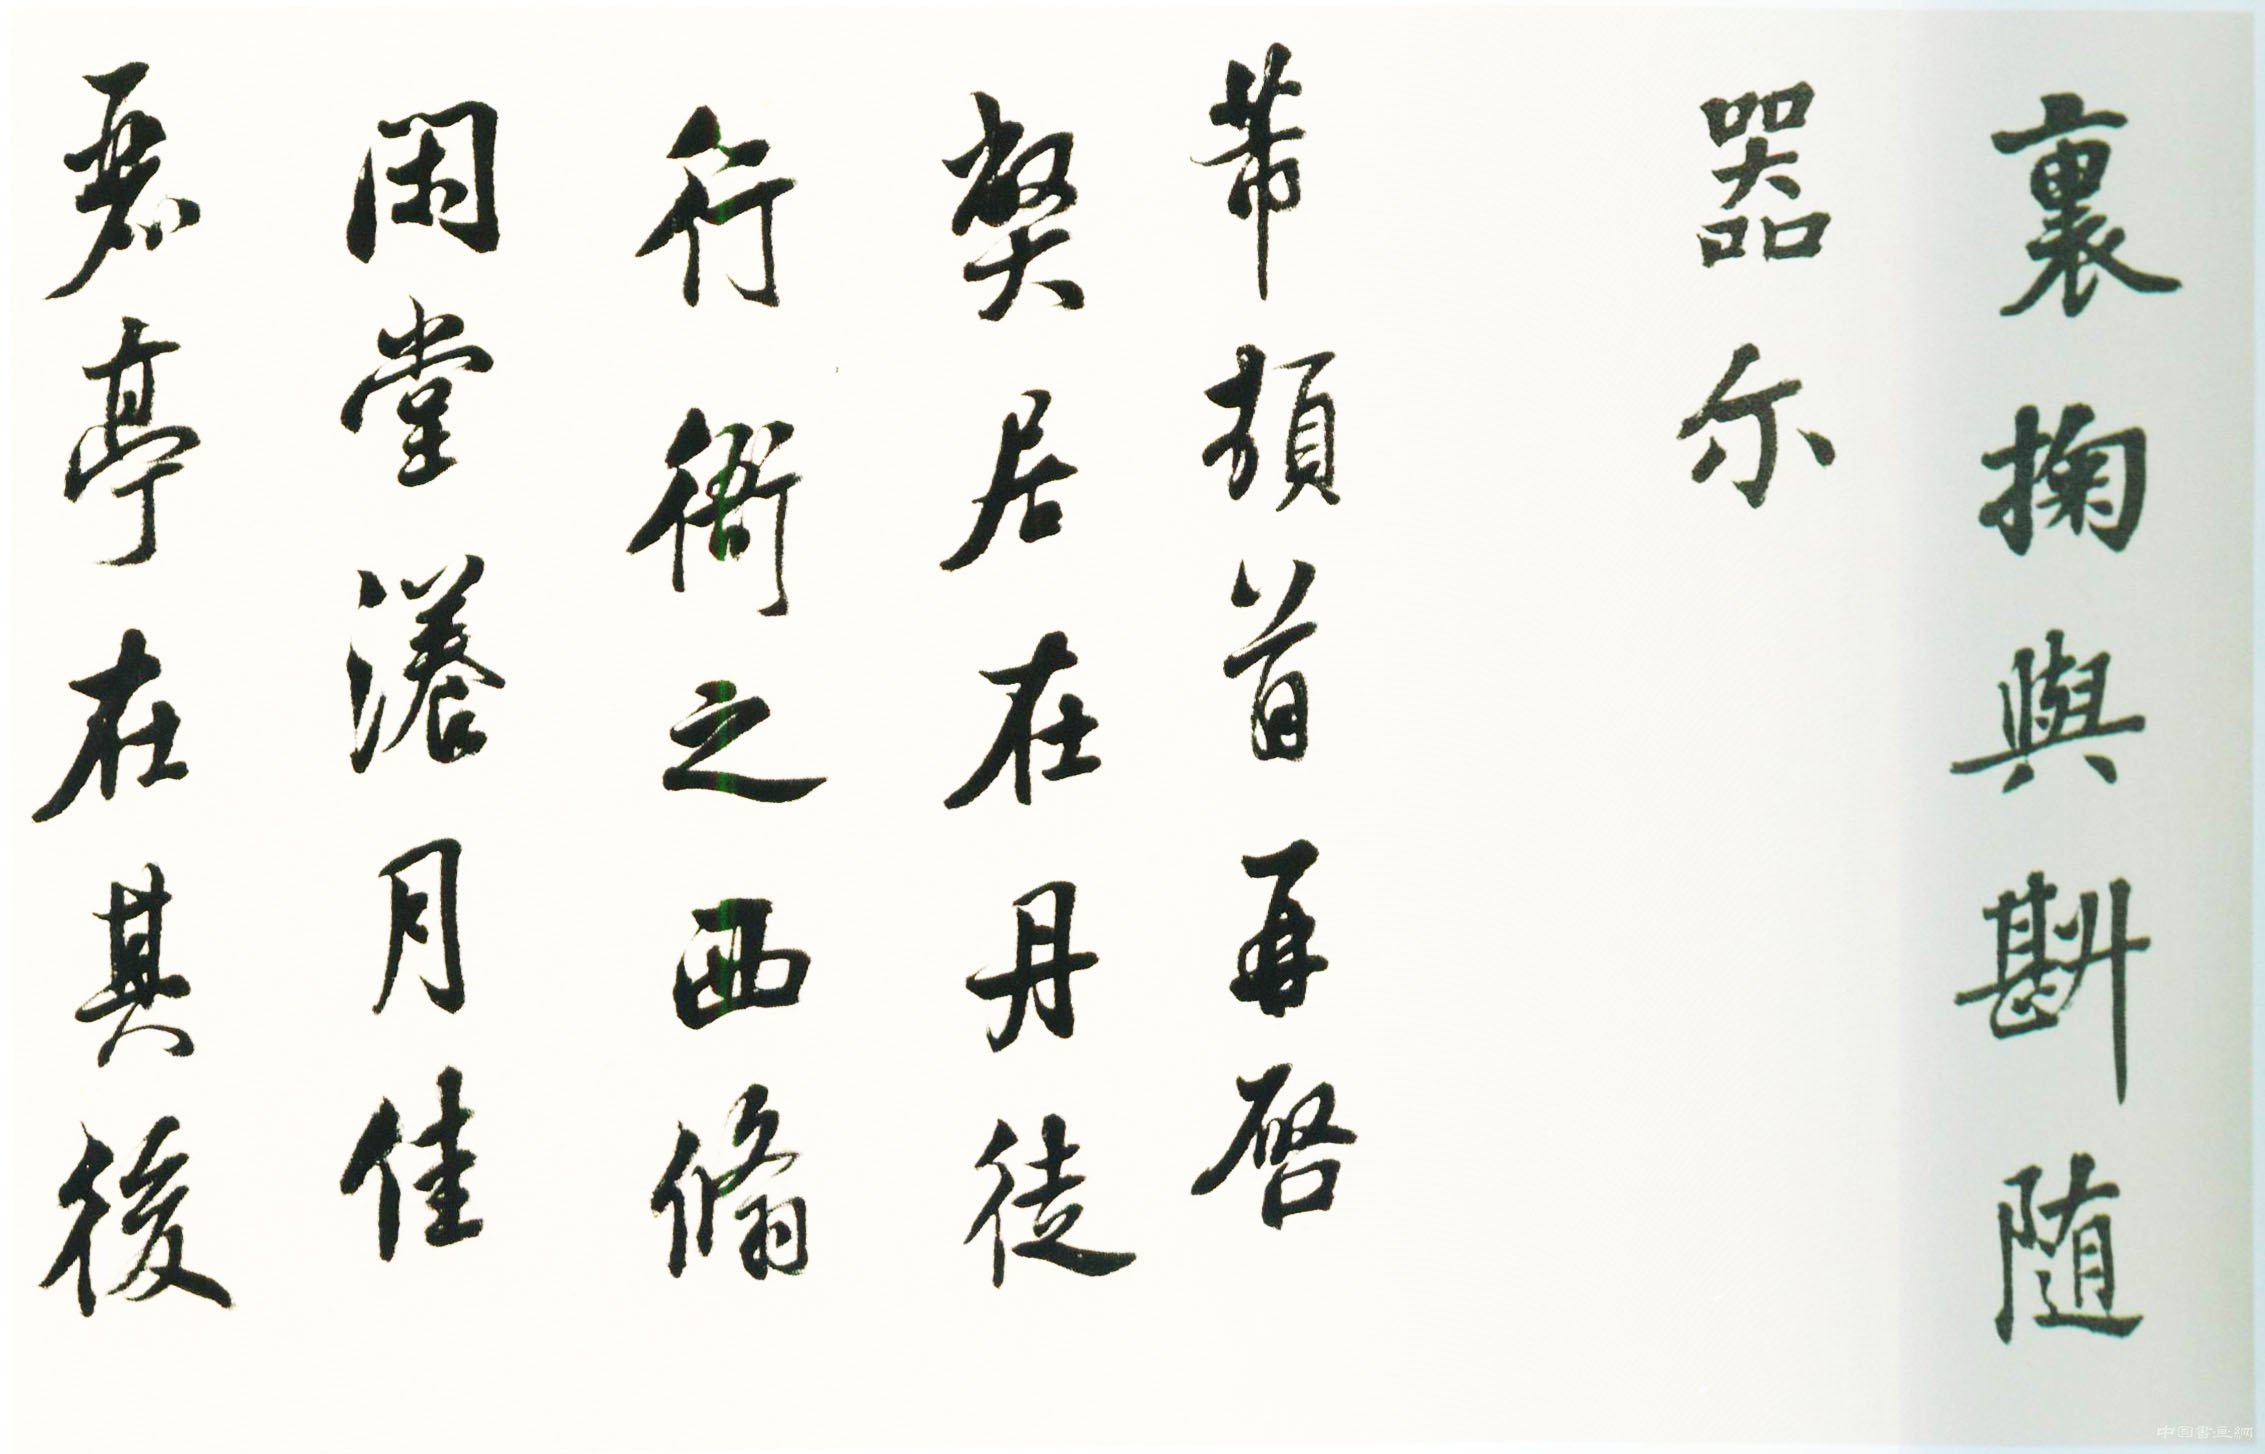 裏掬與斟随
器尓
芾頓首再啓
弊居在丹徒
行衙之西脩
閑堂漾月佳
麗亭在其後
中国書画網